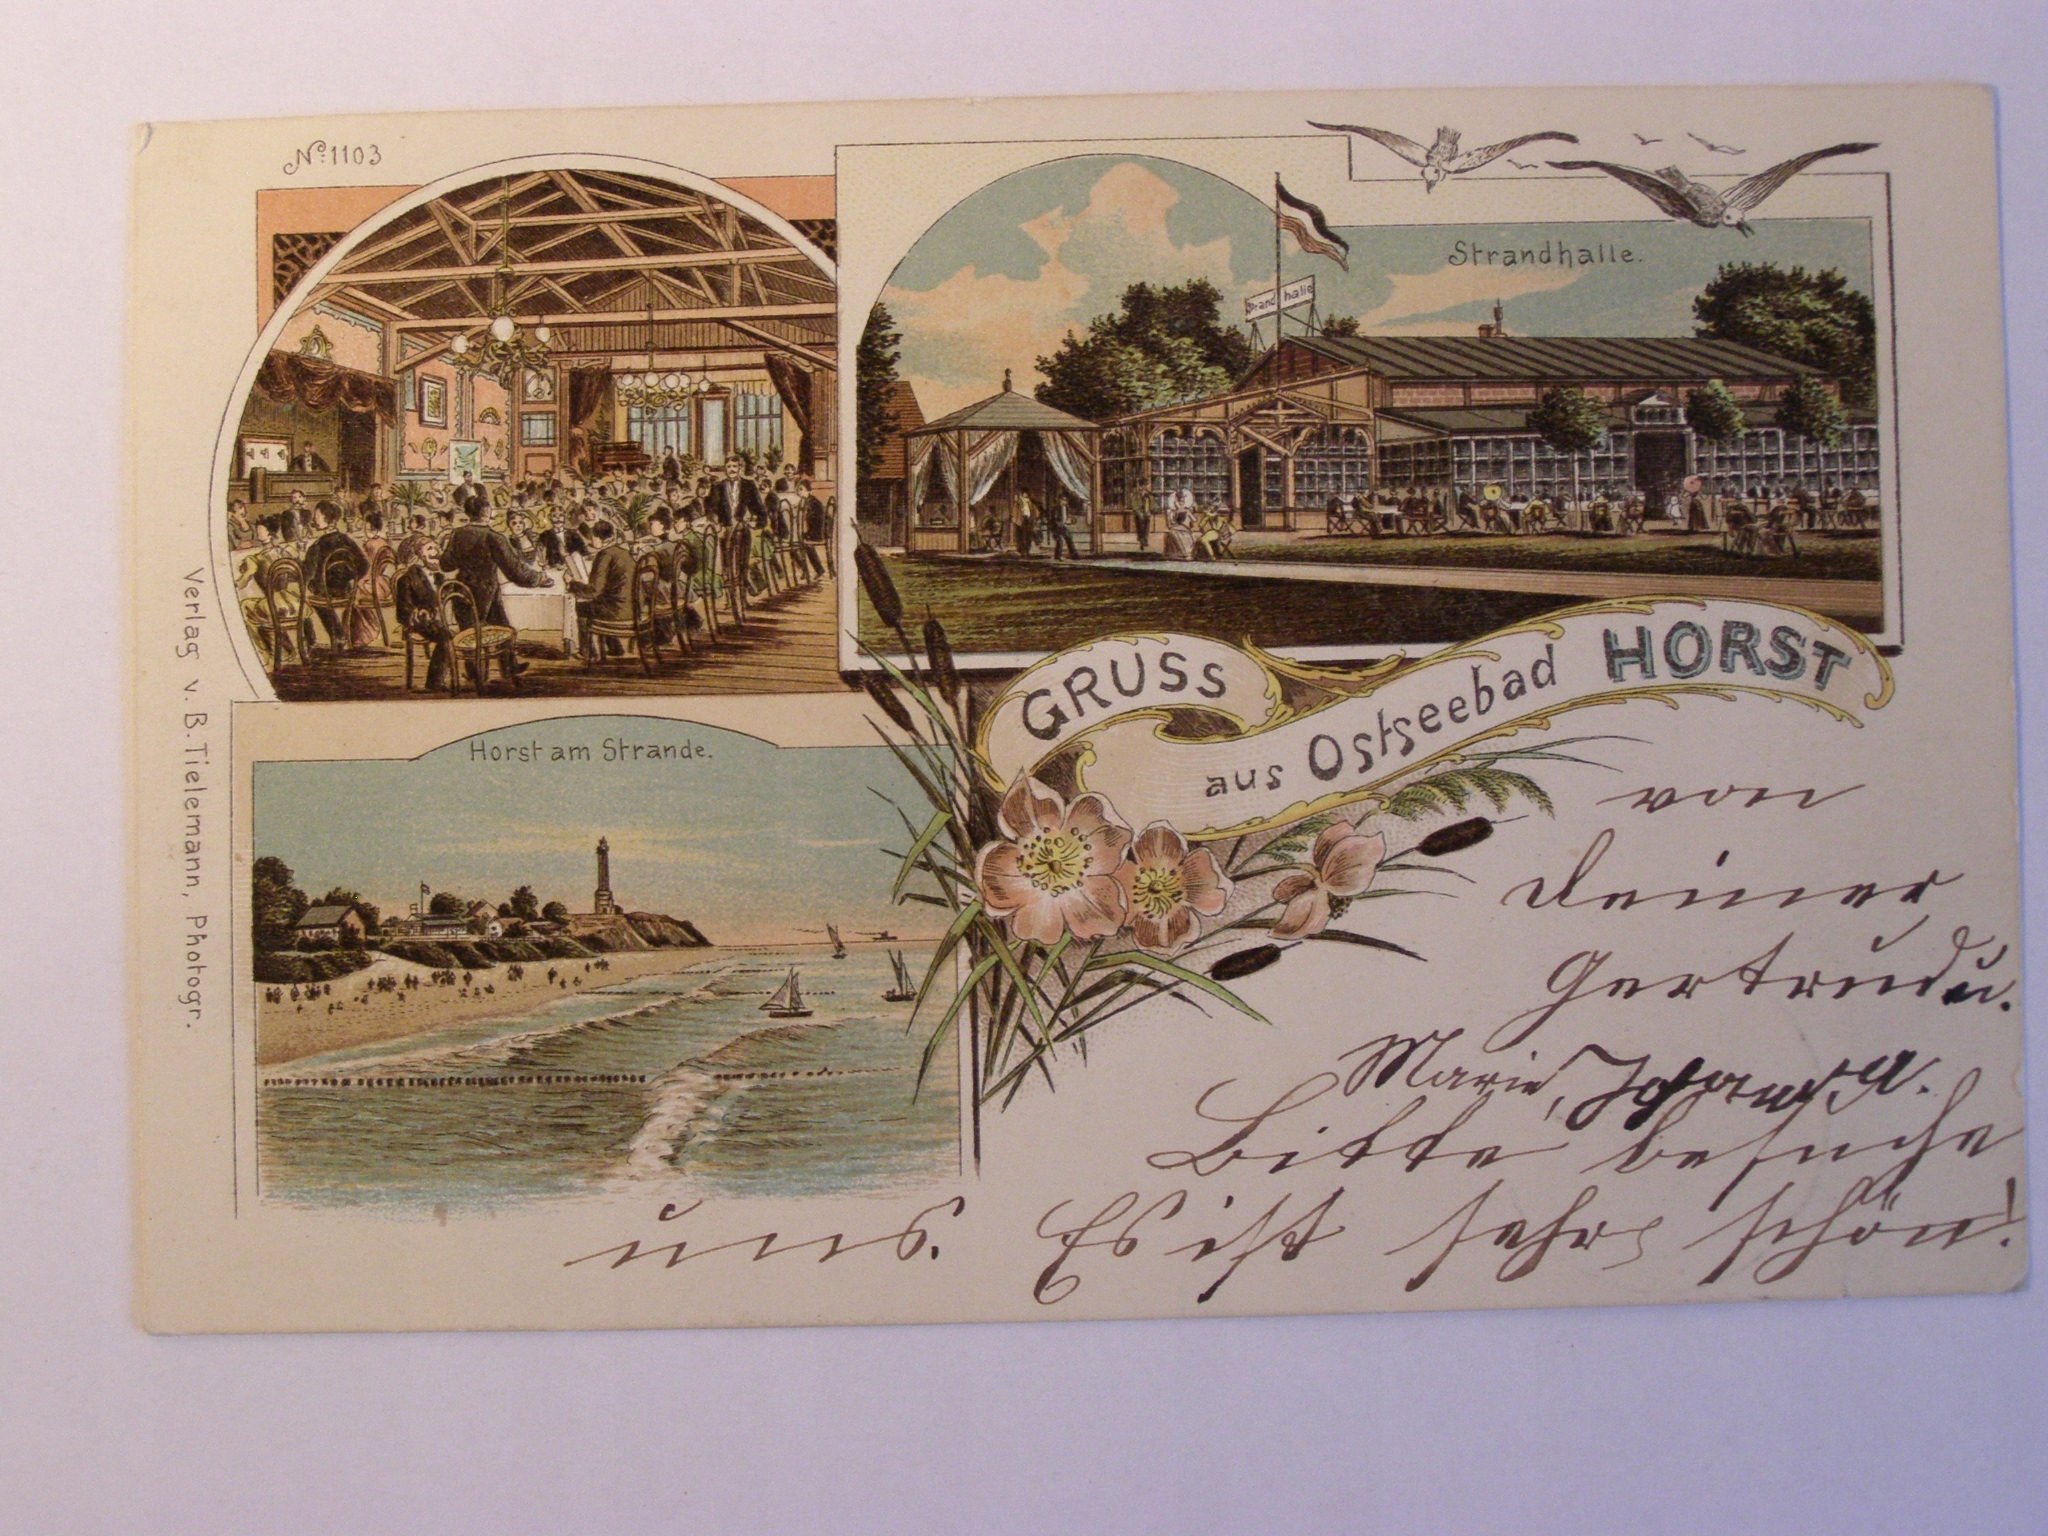 No: 1103
Strandhalle.
Strandhalle
GRUSS
aus Ostseebad HORST
Horst am Strande.
Verlag v. B. Tielemann, Photogr.
von
Deiner
Gertrud u.
Marie,
Bitte besuche
uns. Es ist sehr schön!